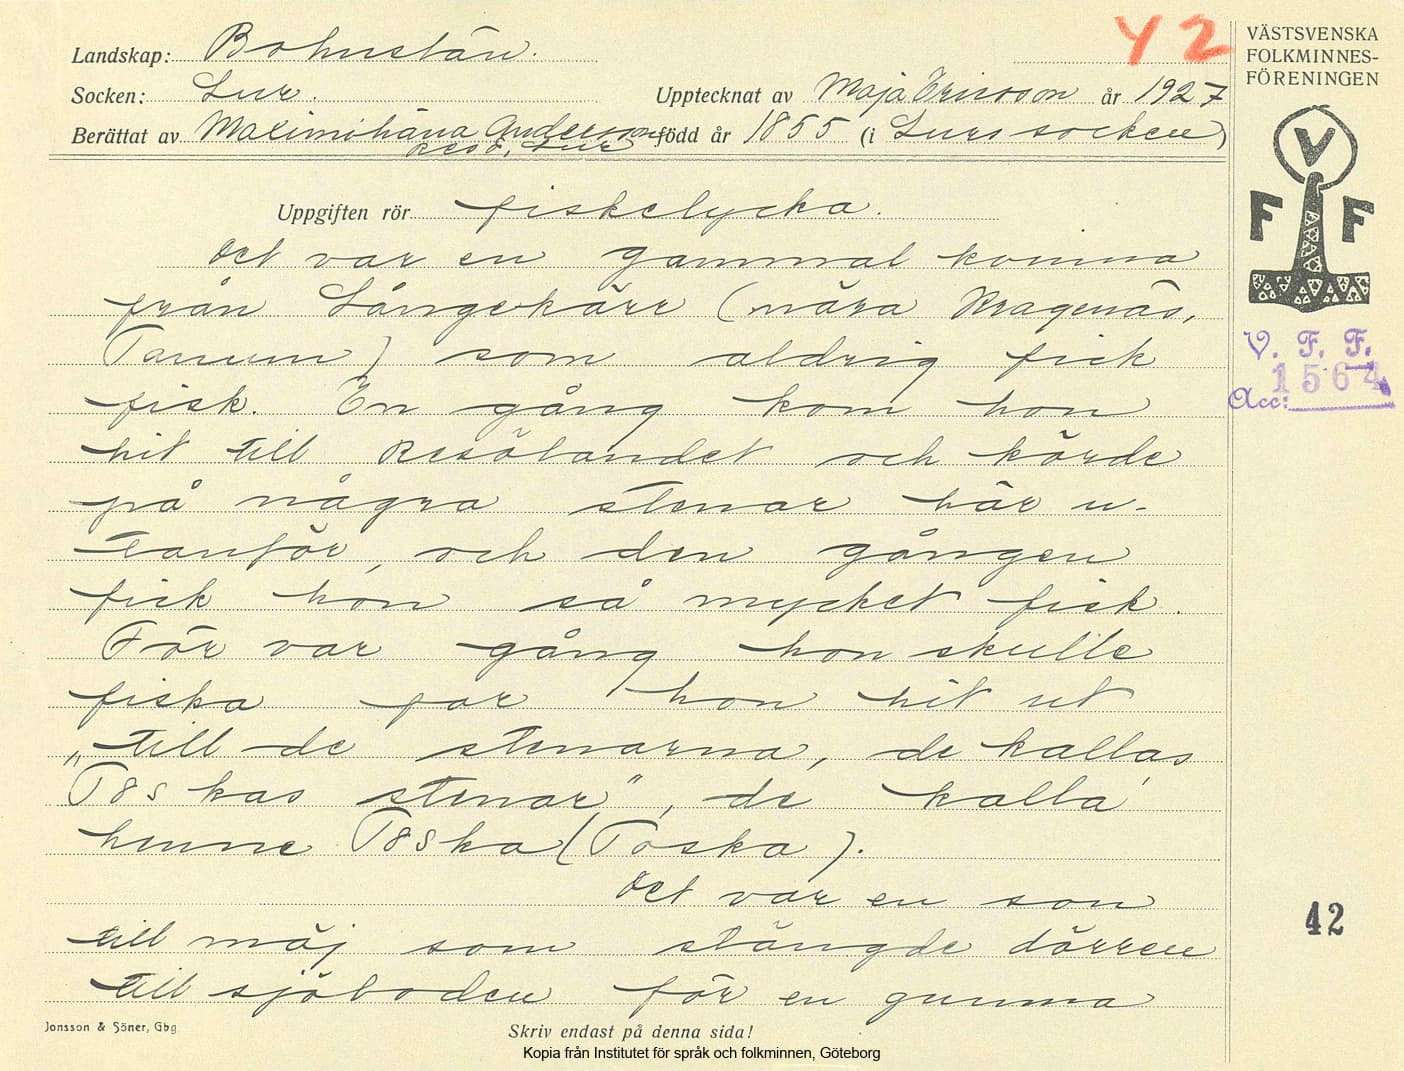 Landskap: Bohuslän.
Y 2
Socken: Lur.
Upptecknat av Maja Ericsson år 1927
Berättat av Maximiliana Andersson född år 1855 (i Lurs socken)
Resö, Lur
Uppgiften rör fiskelycka.
Det var en gammal kvinna
från Långekärr (nära Kragenäs,
Tanum) som aldrig fick
fisk. En gång kom hon
hit till Resölandet och körde
på några stenar här u-
tanför, och den gången
fick hon så mycket fisk.
För var gång hon skulle
fiska far hon hit ut
„till de stenarna, de kallas
T8skas stenar", de kalla'
henne T8ska (Toska).
Det var en son
till mäj som stängde dörren
till sjöboden för en gumma
Jonsson & Söner, Gbg
Skriv endast på denna sida!
Kopia från Institutet för språk och folkminnen, Göteborg
VÄSTSVENSKA
FOLKMINNES-
FÖRENINGEN
V
F F
V. F. F.
1564
Acc:
42